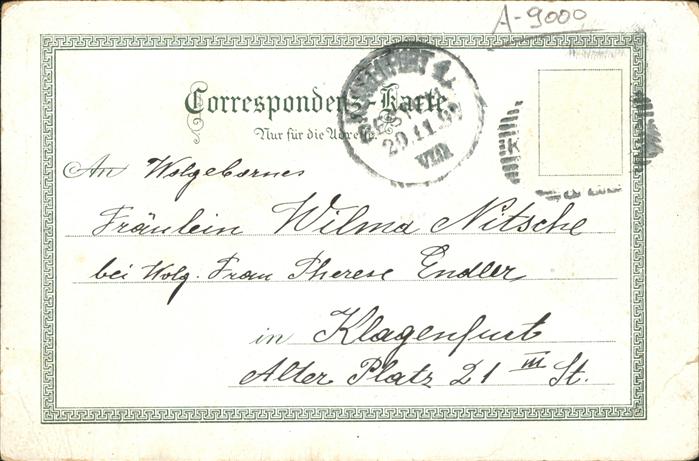 A-9000
Correspondenz-Karte
Nur für die Adresse
KLAGENFURT 1.
BESTELLT
20.11.99
VIII
K
An Wolgebornes
Fräulein Wilma Nitsche
bei Wolg. Frau Therese Endler
in Klagenfurt
Alter Platz 21 III St.